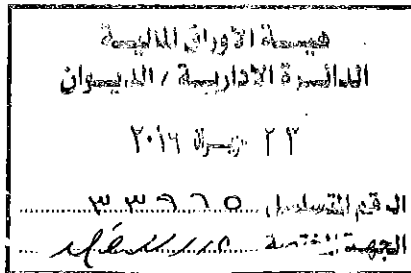 هيئة الأوراق المالية
الدائرة الإدارية / الديوان
٢٢ ٢٠١٦
الرقم المتسلسل ٣٣٩٦٥
الجهة المختصة